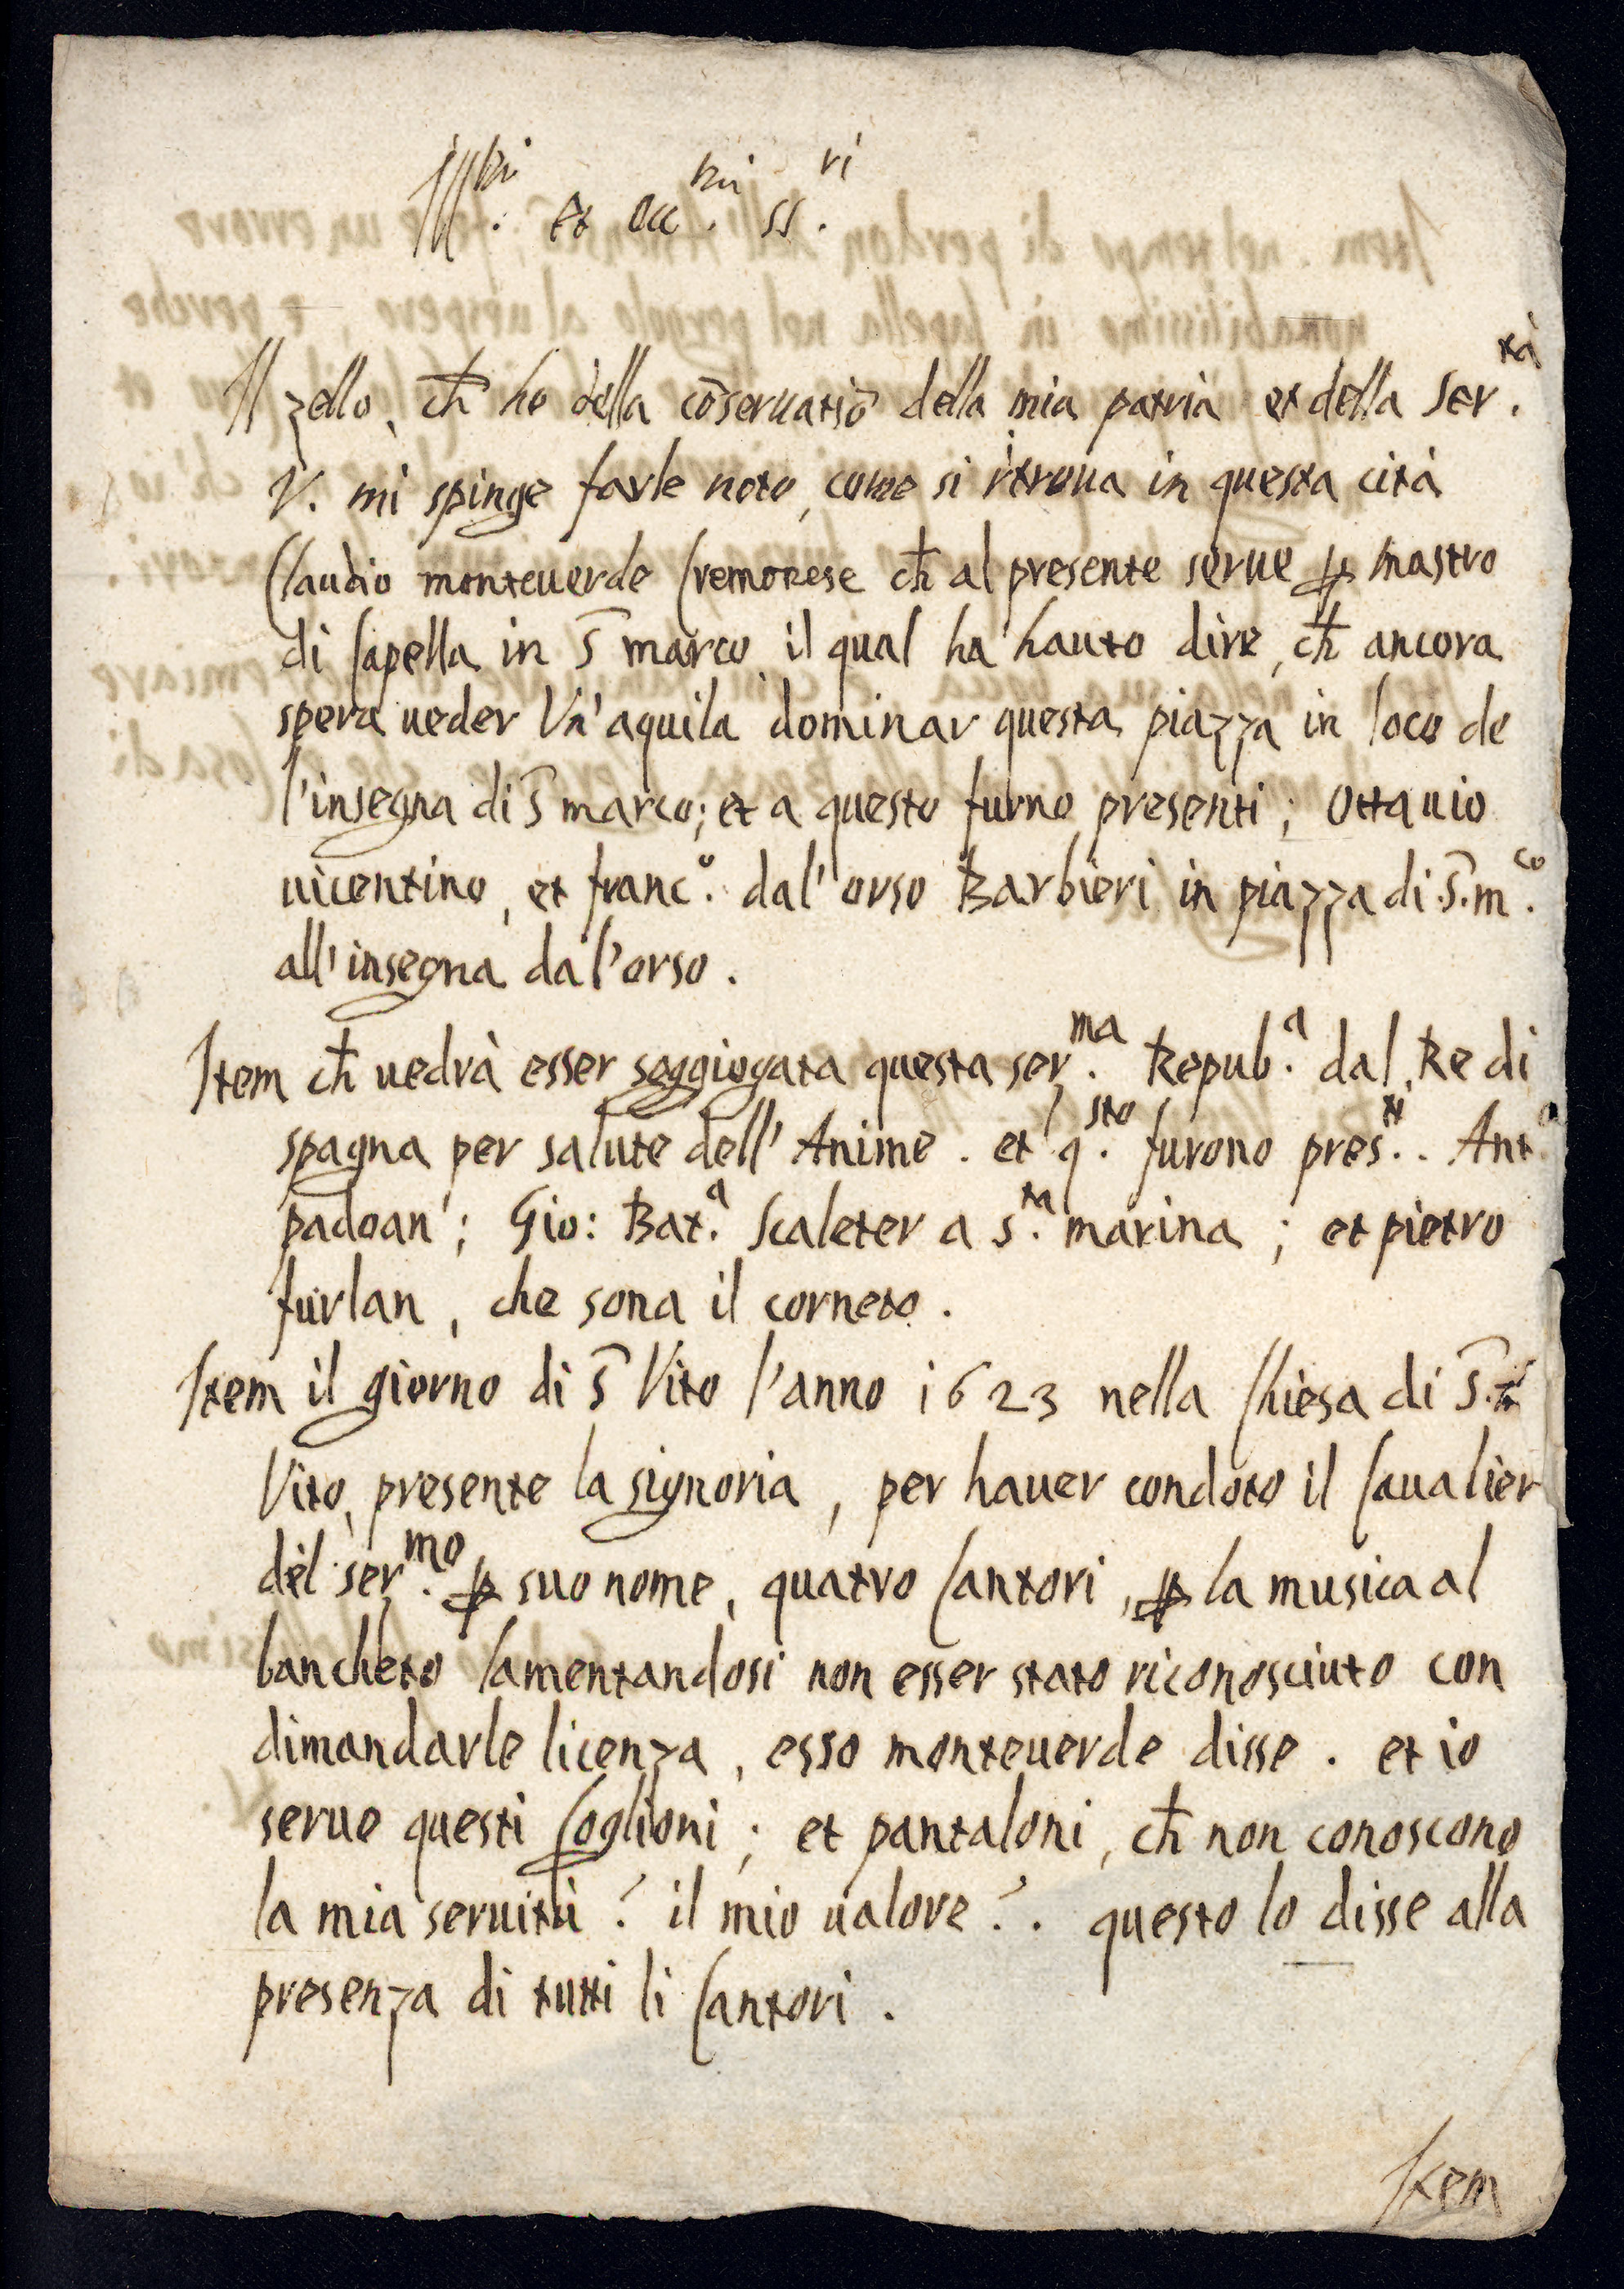 Ill.mi et Ecc.mi SS.ri
Il zello, ch̄ ho della cōseruatiō della mia patria et della Ser.tà
V. mi spinge farle noto, come si ritroua in questa cità
Claudio monteuerde Cremonese ch̄ al presente serue ꝑ mastro
di Capella in S̄ marco il qual ha hauto dire, ch̄ ancora
spera ueder Vn'aquila dominar questa piazza in loco de
l'insegna di S̄ marco; et a questo furno presenti; Ottauio
uicentino, et franc.o dal'orso Barbieri in piazza di.S̄.m.co
all'insegna dal'orso.
Item ch̄ uedrà esser soggiogata questa ser.ma Repub.a dal Re di
spagna per salute dell'Anime. et q.sto furono pres.ti. Ant.o
padoan'; Gio: Bat.a Scaleter a S.ta marina; et pietro
furlan, che sona il corneto.
Item il giorno di S̄ Vito l'anno 1623 nella Chiesa di S̄.
Vito, presente la signoria, per hauer condoto il Caualier
del ser.mo ꝑ suo nome, quatro Cantori, ꝑ la musica al
bancheto lamentandosi non esser stato riconosciuto con
dimandarle licenza, esso monteuerde disse. et io
seruo questi Coglioni; et pantaloni, ch̄ non conoscono
la mia seruitù? il mio ualore?. questo lo disse alla
presenza di tutti li Cantori.
Item